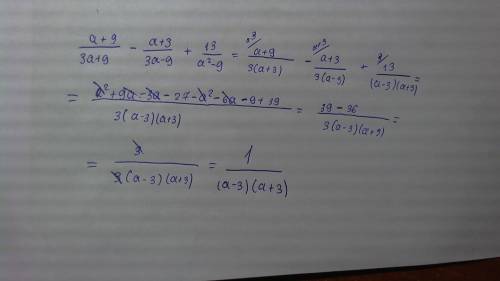 a+9/3a+9 - a+3/3a-9 + 13/a²-9 = a+9/3(a+3) - a+3/3(a-3) + 13/(a-3)(a+3) =
= a²+9a-3a-27-a²-6a-9+39/3(a-3)(a+3) = 39-36/3(a-3)(a+3) =
= 3/3(a-3)(a+3) = 1/(a-3)(a+3)